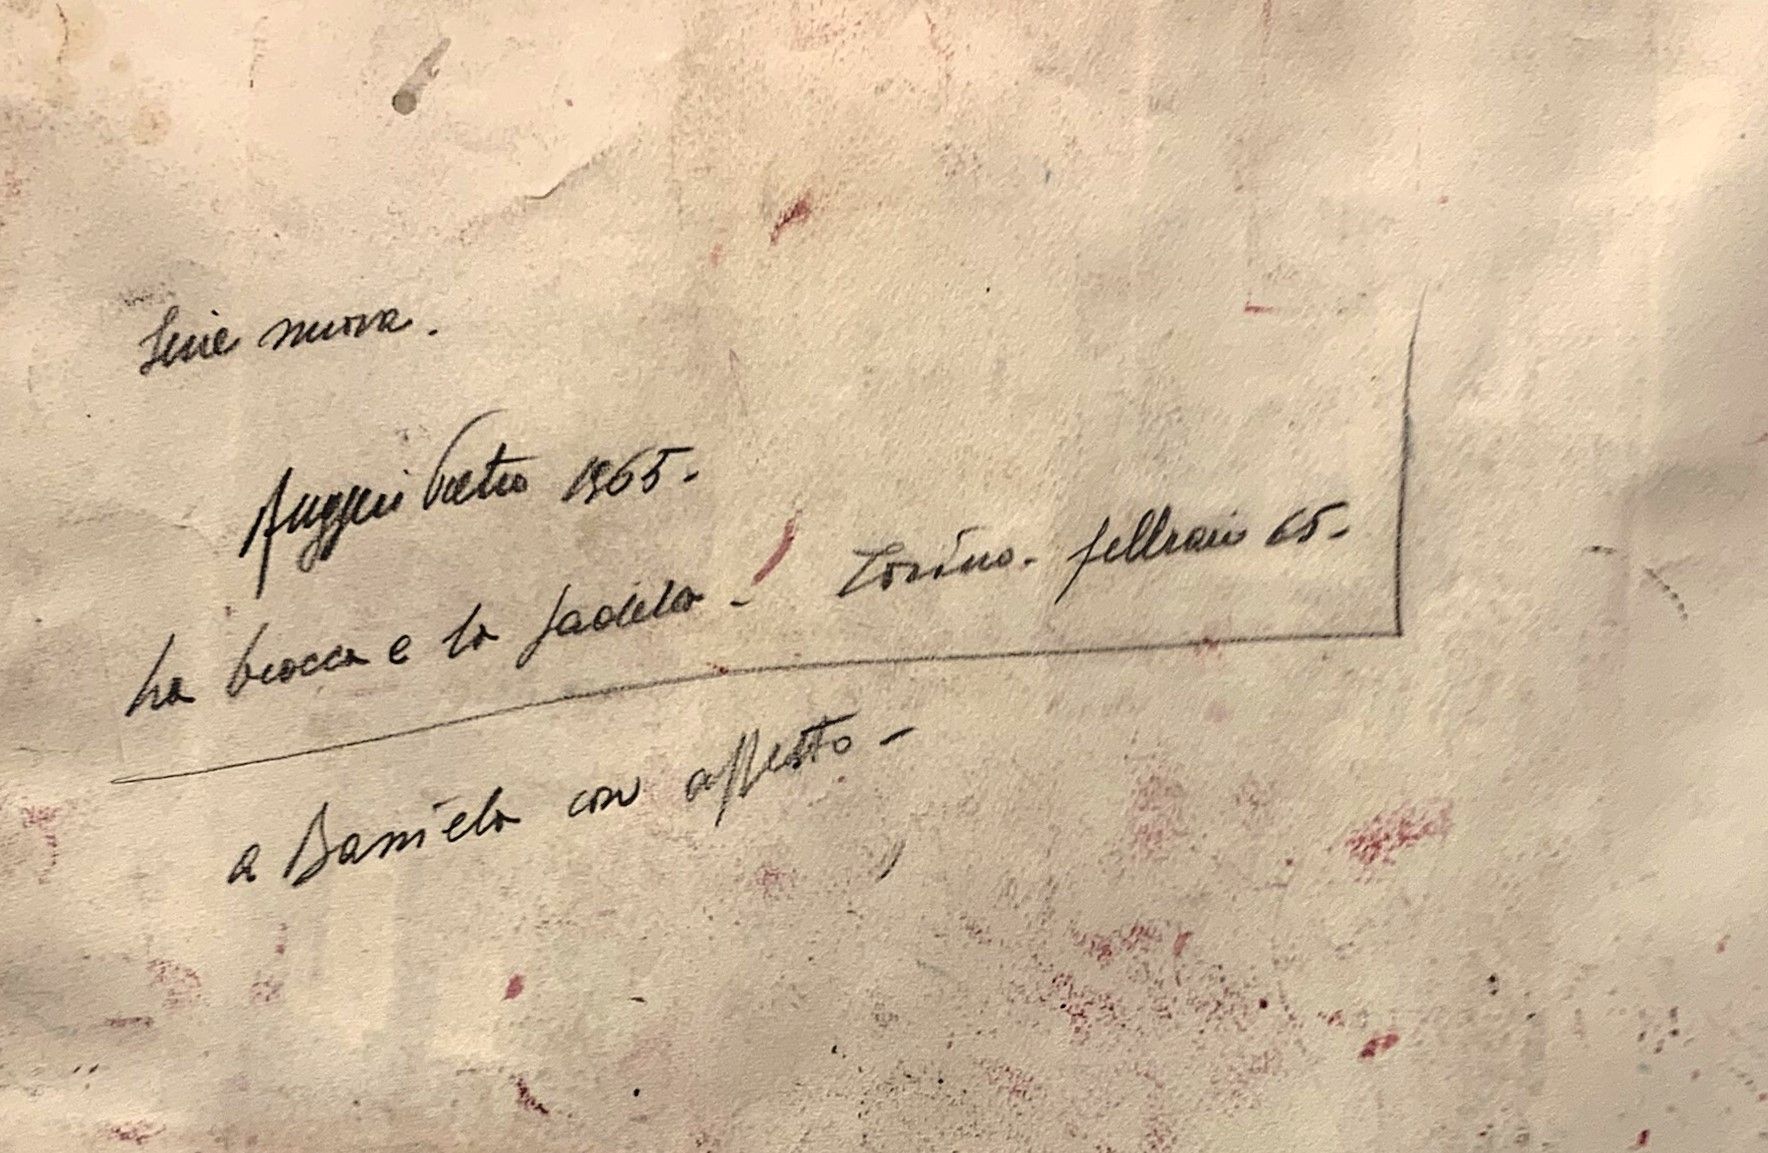 Serie nuova.
Ruggeri Pietro 1965-
La brocca e la padella - Torino - febbraio 65-
a Daniela con affetto -